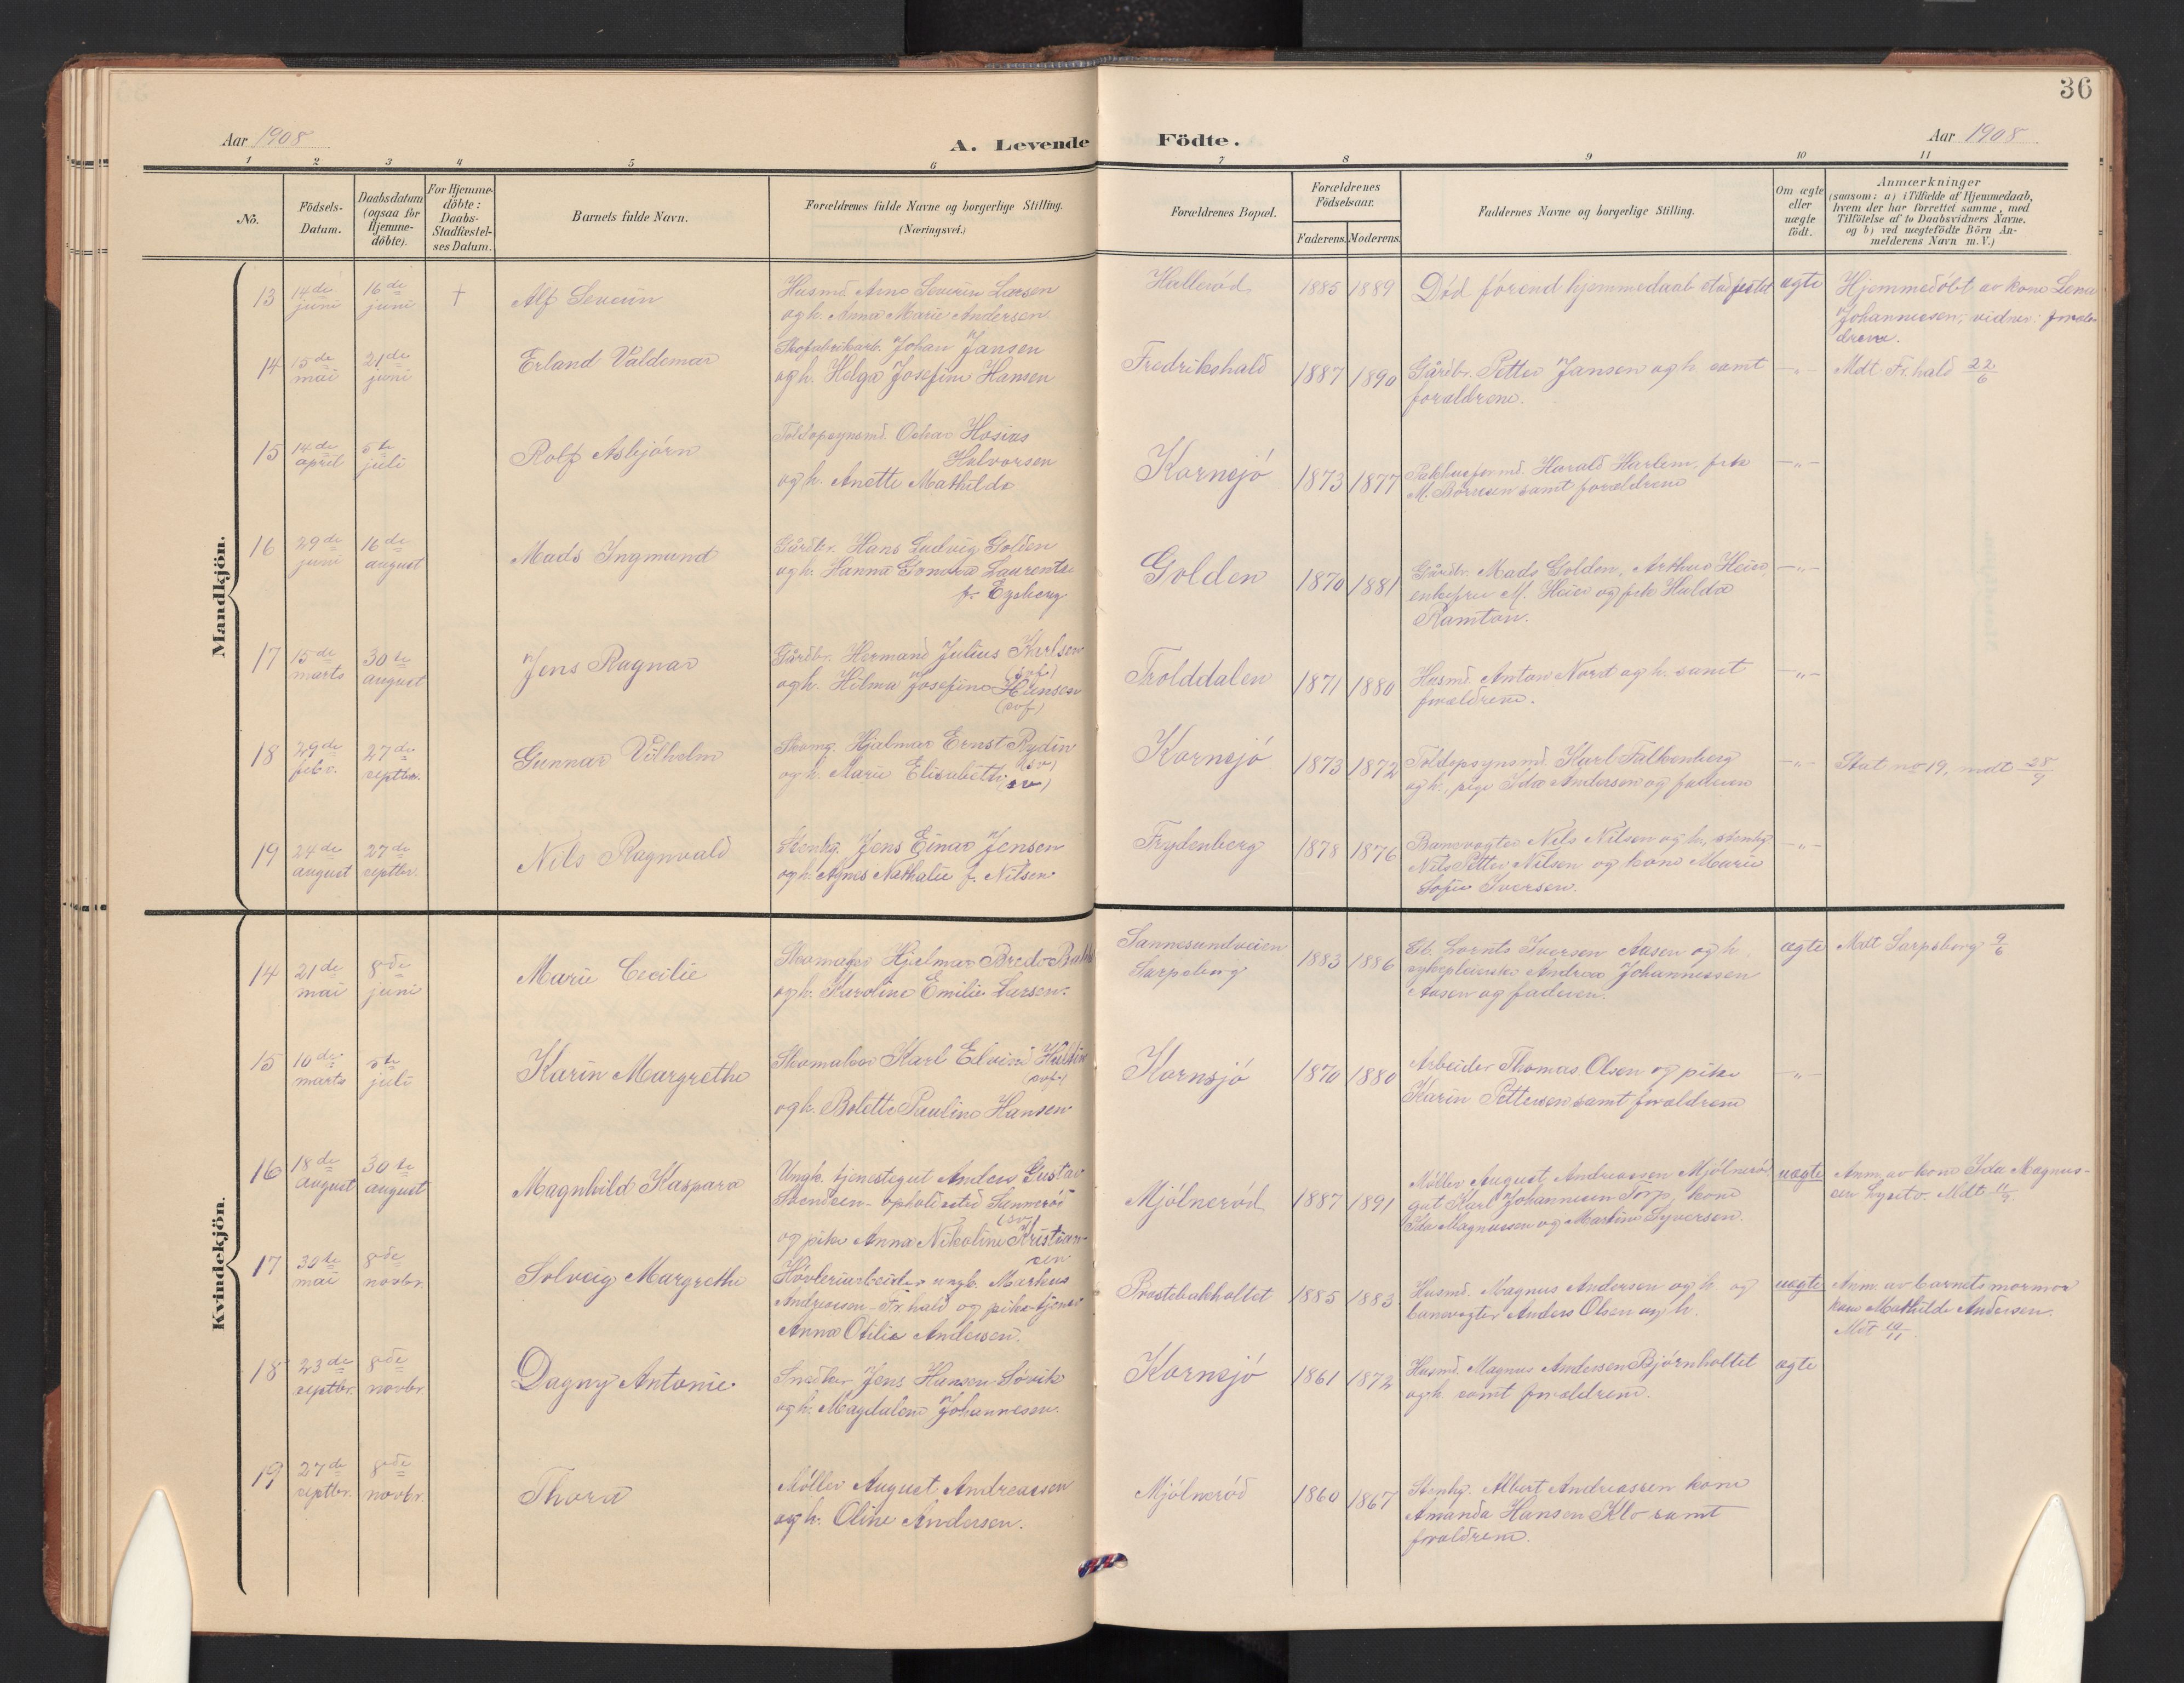 36
Aar 1908
A. Levende Födte.
Aar 1908
1 2 3 4 5 6 7 8 9 10 11
No.
Födsels-
Datum.
Daabsdatum
(ogsaa for
Hjemme-
döbte).
For Hjemme-
döbte:
Daabs-
Stadfæstel-
ses Datum.
Barnets fulde Navn.
Forældrenes fulde Navne og borgerlige Stilling.
(Næringsvei.)
Forældrenes Bopæl.
Forældrenes
Födselsaar.
Faderens. Moderens.
Faddernes Navne og borgerlige Stilling.
Om ægte
eller
uægte
födt.
Anmærkninger
(saasom: a) i Tilfælde af Hjemmedaab,
hvem der har forrettet samme, med
Tilföielse af to Daabsvidners Navne,
og b) ved uægtefödte Börn An-
melderens Navn m. V.)
Mandkjön.
13
14de
juni
16de
juni
†
Alf Severin
Husmd. Arne Severin Larsen
og h. Anna Marie Andersen
Hallerød
1885
1889
Död förend hjemmedaab stadfestet
ægte
Hjemmedöbt av kone Lena
Johannesen, vidner: foræl-
drene.
14
15de
mai
21de
juni
Erland Valdemar
Skofabrikarb. Johan Jansen
og h. Helga Josefine Hansen
Fredrikshald
1887
1890
Gårdbr. Petter Jansen og h. samt
forældrene.
-"-
Mdt Fr.hald 22/6
15
14de
april
5te
juli
Rolf Asbjörn
Toldopsynsmd. Oskar Hosias
Halvorsen
og h. Anette Mathilde
Kornsjö
1873
1877
Pakhusformd. Harald Harlem, frk
M. Börresen samt forældrene
-"-
16
29de
juni
16de
august
Mads Ingmund
Gårdbr. Hans Ludvig Golden
og h. Hanna Gonora Laurentse
f. Egeberg
Golden
1870
1881
Gårdbr. Mads Golden, Arthur Heier
enkefru M. Heier og frk Hulda
Ramton.
-"-
17
15de
marts
30te
august
Jens Ragnar
Gårdbr. Hermand Julius Karlsen
(svf)
og h. Hilma Josefine Hansen
(svf)
Trolddalen
1871
1880
Husmd. Anton Nord og h. samt
forældrene.
-"-
18
29de
febr.
27de
septbr.
Gunnar Vilhelm
Skomg. Hjalmar Ernst Rydin
(sv)
og h. Marie Elisabeth (sv)
Kornsjö
1873
1872
Toldopsynsmd. Karl Falkenberg
og h., pige Ida Andersen og faderen
-"-
Stat no 19, mdt 28/9
19
24de
august
27de
septbr.
Nils Ragnvald
Stenhg. Jens Einar Jensen
og h. Agnes Nathalie f. Nilsen
Frydenberg
1878
1876
Banevogter Nils Nilsen og h., stenhg
Nils Petter Nilsen og kone Marie
Sofie Iversen.
-"-
Kvindekjön.
14
21de
mai
8de
juni
Marie Cecilie
Skomager Hjalmar Bredo
og h. Karoline Emilie Larsen.
Sannesundveien
Sarpsborg
1883
1886
Gb. Lornts Iversen Aasen og h.
sykepleierske Andrea Johannessen
Aasen og faderen.
ægte
Mdt Sarpsborg 9/6
15
10de
marts
5te
juli
Karin Margrethe
Skomaker Karl Edvin
(svf)
og h. Bolette Pauline Hansen
Kornsjö
1870
1880
Arbeider Thomas Olsen og pike
Karin Pettersen samt forældrene
-"-
16
18de
August
30te
august
Magnhild Kaspara
Ungk. tjenestegut Anders Gustav
Svendsen - opholdssted
(sv)
og pike Anna Nikoline Kristian-
sen
Mjölneröd
1887
1891
Möller August Andreassen Mjölneröd
gut Karl Johannesen Torp, kone
Ida Magnussen og Martine Syversen.
uægte
Anm. av kone Ida Magnus-
sen Mdt
17
30te
mai
8de
novbr.
Solveig Margrethe
Hövleriarbeider ungk. Markus
Andreassen - Fr.hald og pike tjener
Anna Otilie Andersen.
Prestebakholtet
1885
1883
Husmd. Magnus Andersen og h og
banevogter Anders Olsen og h.
uægte
Anm. av barnets mormor
kone Mathilde Andersen.
Mdt 10/11
18
23de
septbr.
8de
novbr.
Dagny Antonie
Snedker Jens Hansen Lövik
og h. Magdalene Johannesen.
Kornsjö
1861
1872
Husmd. Magnus Andersen Björnholtet
og h. samt forældrene.
ægte
19
27de
septbr.
8de
novbr.
Thora
Möller August Andreassen
og h. Oline Andersen.
Mjölneröd
1860
1867
Stenhg. Albert Andreassen kone
Amanda Hansen Klo samt
forældrene.